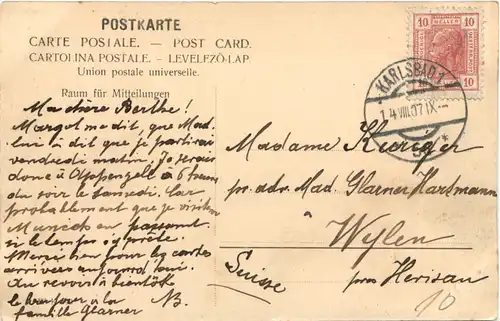 POSTKARTE
CARTE POSTALE. — POST CARD.
CARTOLINA POSTALE. – LEVELEZÖ-LAP
Union postale universelle.
Raum für Mitteilungen
10 HELLER 10
KARLSBAD 1
14 VIII 07 IX
Ma chère Berthe!
Margot me dit, que Mad.
lui a dit que je partirai
vendredi matin. Je serais
donc à Appenzell à 6 heures
du soir le samedi. Car
probablement que je visiterai
München en passant
si le temps s'y prête.
Merci bien pour les cartes
arrivées aujourd'hui.
Au revoir à bientôt
le bonjour à la
famille Glarner
Madame Kuriger
pr. adr. Mad. Glarner Hartmann
Wylen
près Herisau
Suisse
10